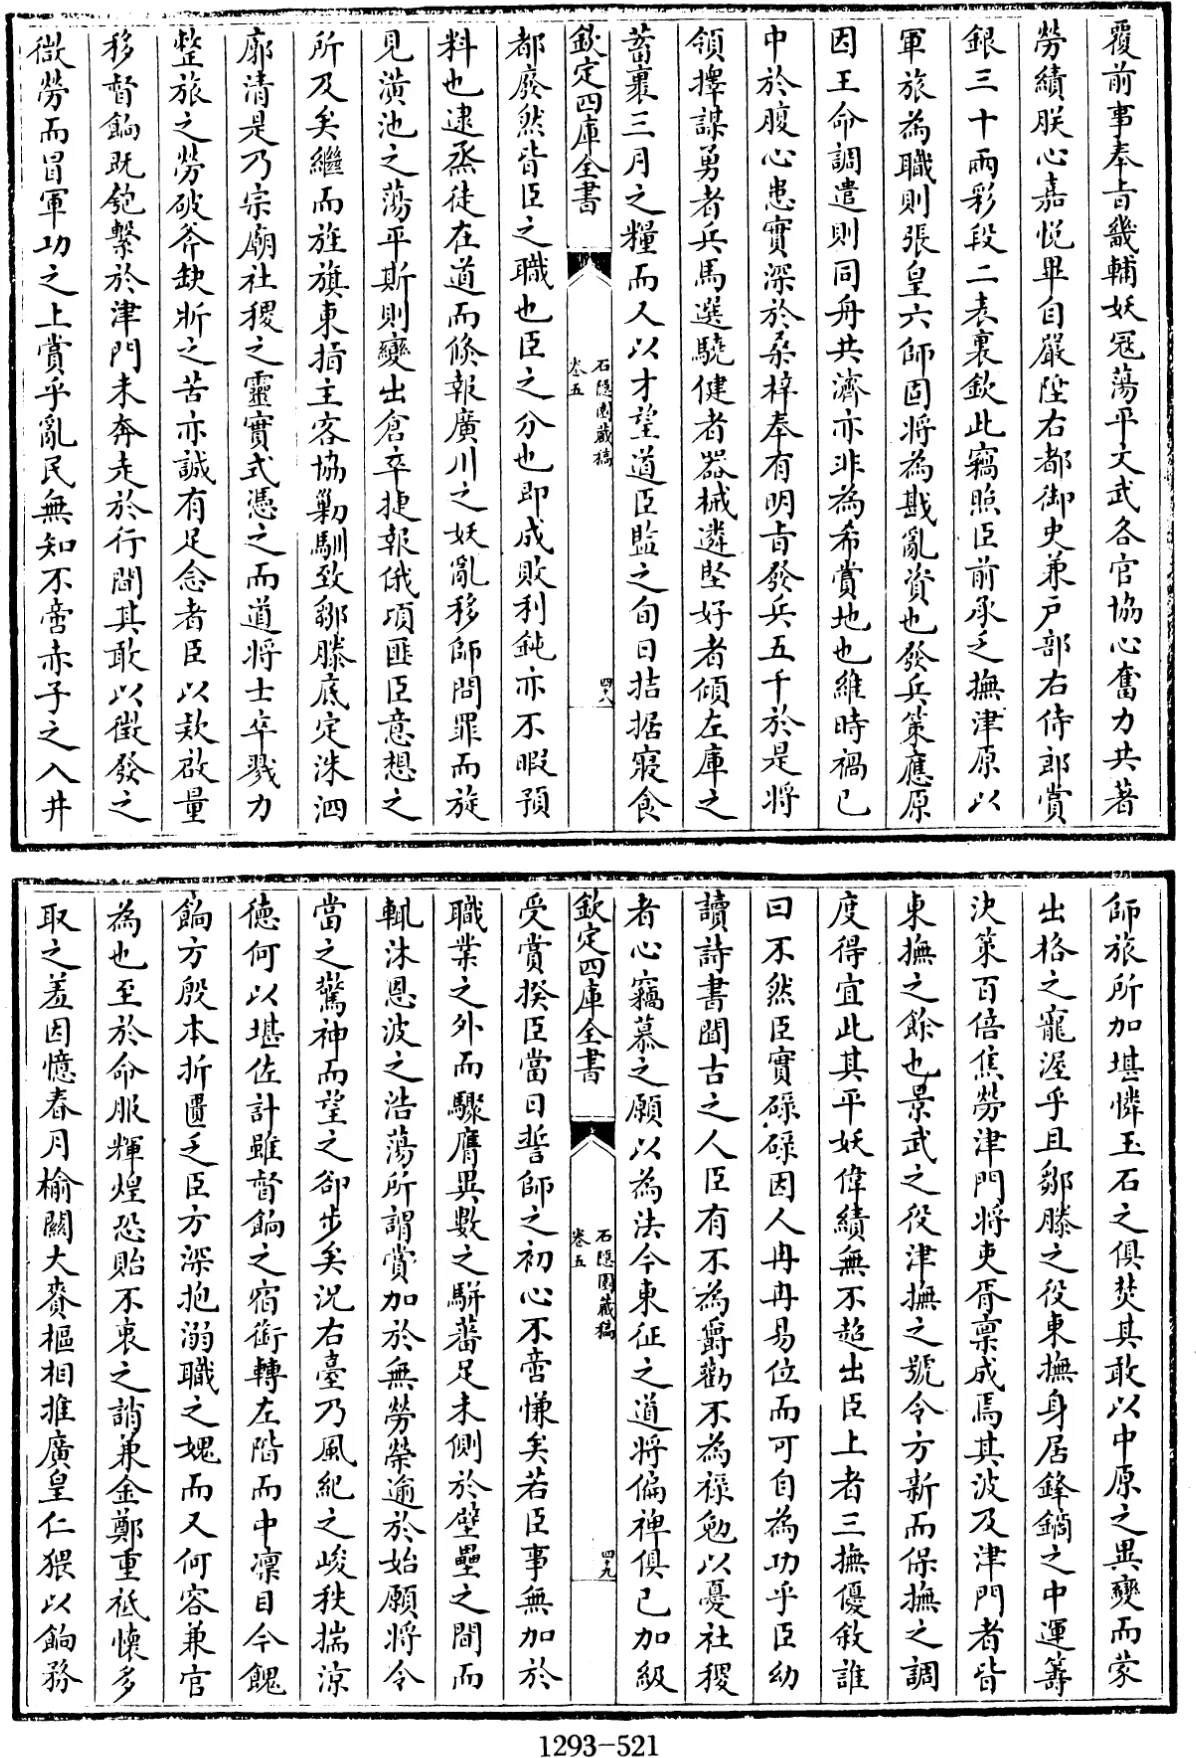 覆前事奉旨畿輔妖冦蕩平文武各官協心奮力共著
勞績朕心嘉悅畢自嚴陞右都御史兼户部右侍郎賞
銀三十兩彩段二表裏欽此竊照臣前承乏撫津原以
軍旅為職則張皇六師固將為戡亂資也發兵策應原
因王命調遣則同舟共濟亦非為希賞地也維時禍已
中於腹心患實深於桑梓奉有明旨發兵五千於是將
領擇謀勇者兵馬選驍健者器械遴堅好者傾左庫之
蓄裹三月之糧而人以才望道臣監之旬日拮据寢食
欽定四庫全書
石隱園藏稿
卷五
四八
都廢然皆臣之職也臣之分也即成敗利鈍亦不暇預
料也逮烝徒在道而條報廣川之妖亂移師問罪而旋
見潢池之蕩平斯則變出倉卒捷報俄頃匪臣意想之
所及矣繼而旌旗東指主客協勦馴致鄒滕底定洙泗
廓清是乃宗廟社稷之靈實式憑之而道將士卒戮力
整旅之勞破斧缺斨之苦亦誠有足念者臣以欵啟量
移督餉既匏繫於津門未奔走於行間其敢以徴發之
微勞而冒軍功之上賞乎亂民無知不啻赤子之入井
師旅所加堪憐玉石之俱焚其敢以中原之異變而蒙
出格之寵渥乎且鄒滕之役東撫身居鋒鏑之中運籌
決策百倍焦勞津門將吏胥稟成焉其波及津門者皆
東撫之餘也景武之役津撫之號令方新而保撫之調
度得宜此其平妖偉績無不超出臣上者三撫優敘誰
曰不然臣實碌碌因人冉冉易位而可自為功乎臣幼
讀詩書聞古之人臣有不為爵勸不為祿勉以憂社稷
者心竊慕之願以為法今東征之道將偏裨俱已加級
欽定四庫全書
石隱園藏稿
卷五
四九
受賞揆臣當日誓師之初心不啻慊矣若臣事無加於
職業之外而驟膺異數之駢蕃足未側於壁壘之間而
輒沐恩波之浩蕩所謂賞加於無勞榮逾於始願將令
當之驚神而望之卻步矣況右臺乃風紀之峻秩揣涼
德何以堪佐計雖督餉之宿銜轉左階而中凛目今餽
餉方殷本折匱乏臣方深抱溺職之媿而又何容兼官
為也至於命服輝煌恐貽不衷之誚兼金鄭重祗懷多
取之羞因憶春月榆關大賚樞相推廣皇仁猥以餉務
1293-521